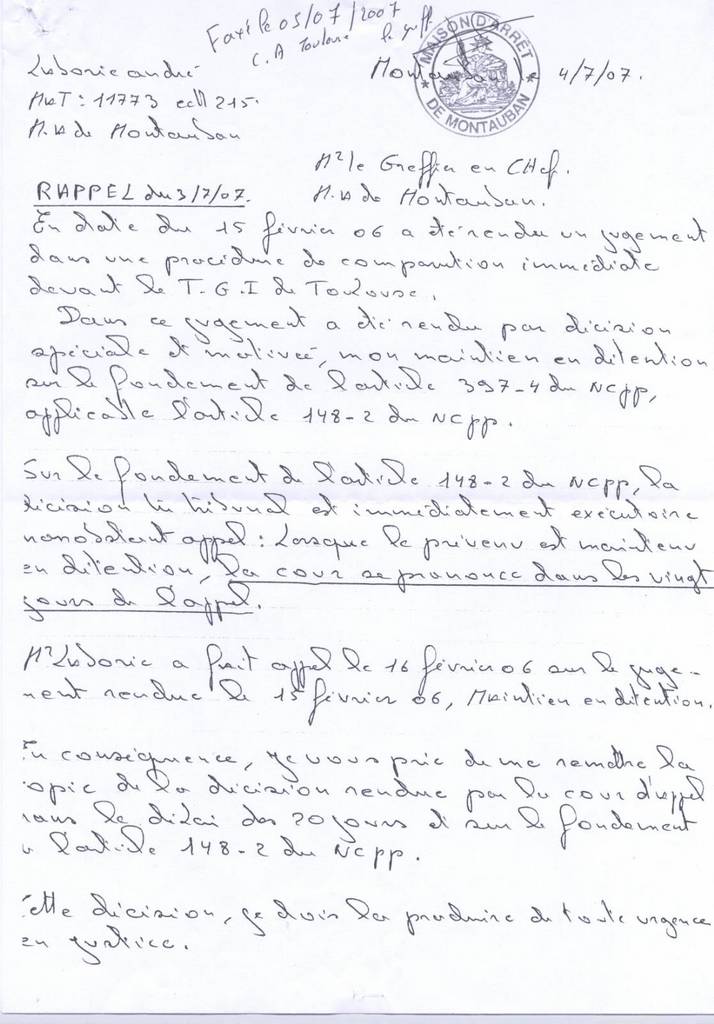 Faxé le 05/07/2007
C.A Toulouse le greff
MAISON D'ARRÊT
DE MONTAUBAN
Laborie andré
Montauban le 4/7/07.
MAT : 11773 cell 215.
M.A de Montauban
Mr le Greffier en CHef.
M.A de Montauban.
RAPPEL du 3/7/07.
En date du 15 février 06 a été rendu un jugement
dans une procédure de comparution immédiate
devant le T.G.I de Toulouse.
Dans ce jugement a été rendu par décision
spéciale et motivée, mon maintien en détention
sur le fondement de l'article 397-4 du NCPP,
applicable l'article 148-2 du NCPP.
Sur le fondement de l'article 148-2 du NCPP, la
décision du tribunal est immédiatement exécutoire
nonobstant appel : Lorsque le prévenu est maintenu
en détention, la cour se prononce dans les vingt
jours de l'appel.
Mr Laborie a fait appel le 16 février 06 sur le juge-
ment rendue le 15 février 06, Maintien en détention.
En conséquence, je vous prie de me remettre la
copie de la décision rendue par la cour d'appel
dans le délai des 20 jours et sur le fondement
de l'article 148-2 du NCPP.
Cette décision, je dois la produire de toute urgence
en justice.